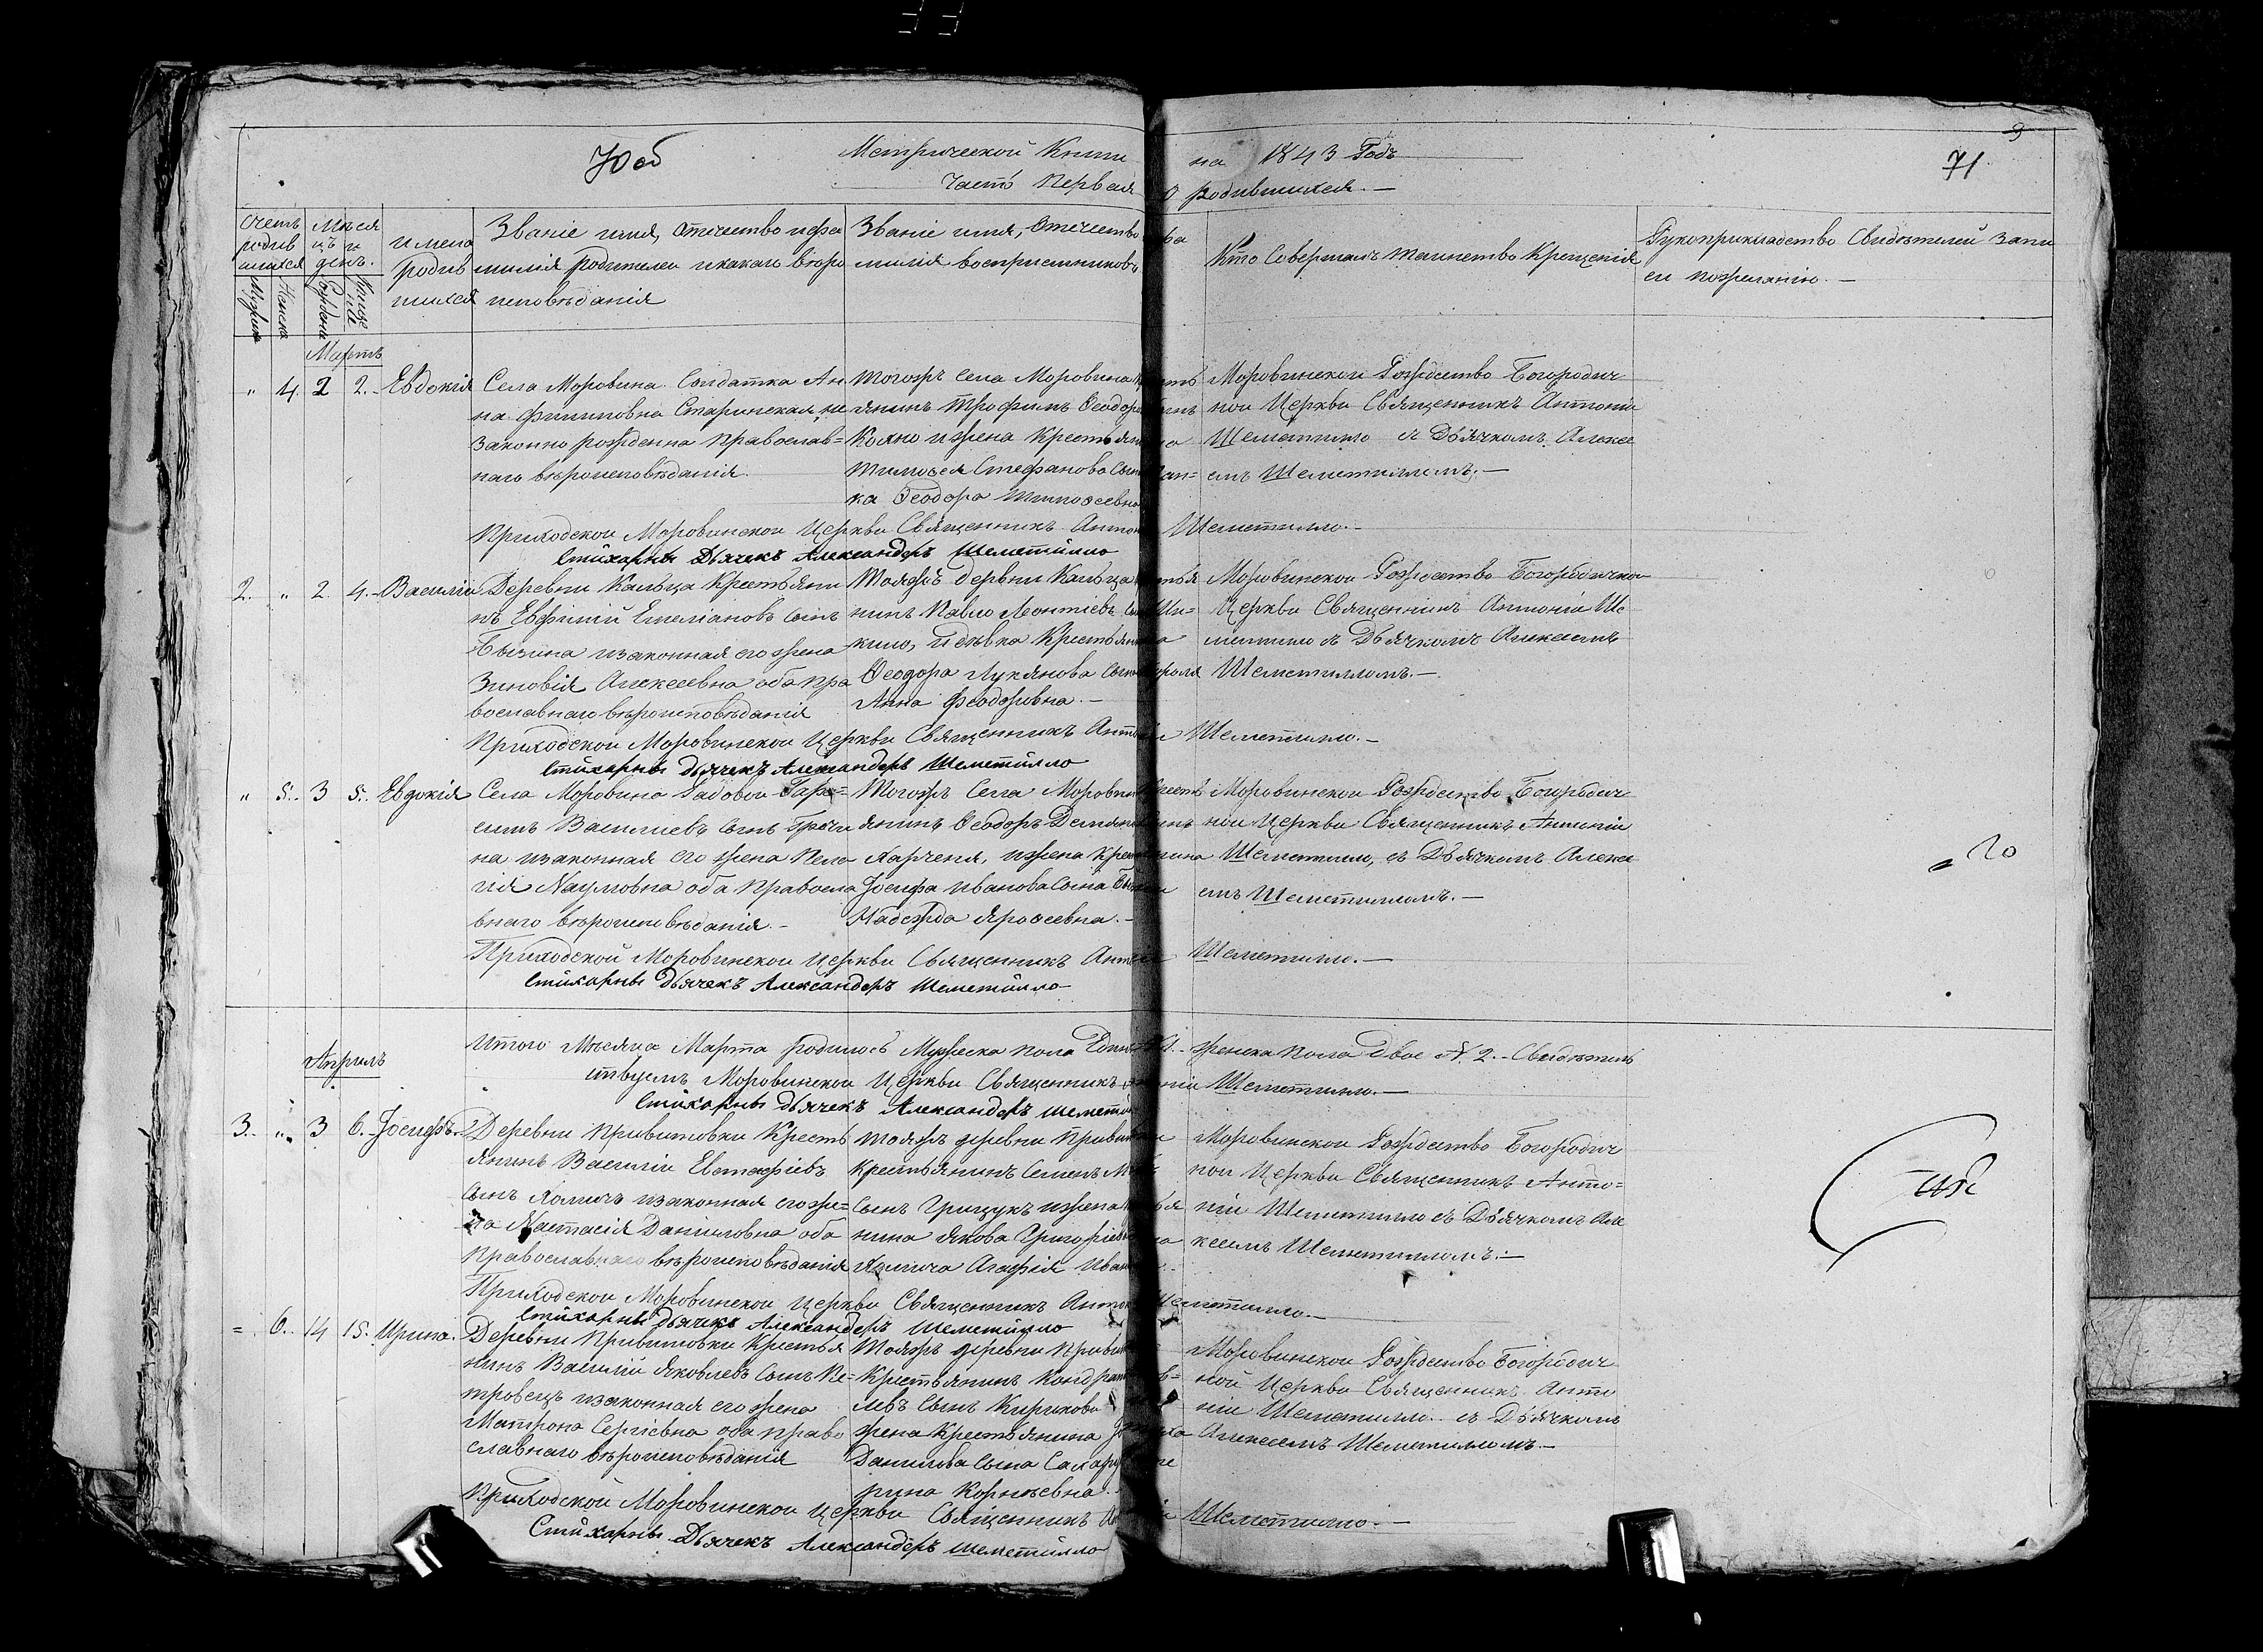 Метрической Книги на 1843 Годъ
71
Часть Первая о родившихся.—
Счетъ родившихся
Мужеска
Женска
Мѣсяцъ и день.
Рожденія
Крещенія
Имена родившихся
Званіе имя, отечество и фамилія родителей и какого вѣроисповѣданія
Званіе имя, отечество фамилія воспріемниковъ
Кто Совершалъ таинство Крещенія
Рукоприкладство Свидѣтелей записи по желанію.—
Мартъ
" 4. 2 2. Евдокія
Села Моровина Солдатка Ан
на Филиповна Старинская не
законно рожденна православ=
наго вѣроисповѣданія.
Тогожъ села Моровина
янинъ Трофимъ Ѳеодор
жена Крестьянина
Тимоѳея Стефанова Сын
ка Ѳеодора Тимоѳеевна
Моровинской Рождество Богородич
ной Церкви Священникъ Антоній
Шеметилло съ Дьячкомъ Алексе
емъ Шеметилломъ.—
Приходской Моровинской Церкви Священникъ Антоній Шеметилло.—
Стихарный Дьячекъ Александръ Шеметилло
2. " 2. 4. Василій
Деревни Кальца Крестьяни
нъ Евфимій Емеліановъ сынъ
изаконная его жена
Зиновія Алексеевна оба пра
вославнаго вѣроисповѣданія
Тояжъ дервни Кальца
нинъ Павло Леонтіевъ
кило, и дѣвка Крестьянина
Ѳеодора Лукянова Сына
Анна Феодоровна.—
Моровинской Рождество Богородичной
Церкви Священникъ Антоній Ше
метилло съ Дьячкомъ Алексеемъ
Шеметилломъ.—
Приходской Моровинской Церкви Священникъ Антоній Шеметилло.—
Стихарный дьячекъ Александръ Шеметилло
" 5. 3 5. Евдокія
Села Моровино Рядовой Гара=
симъ Василіевъ сынъ Гречи
на изаконная его жена Пела
гія Наумовна оба Правосла
внаго вѣроисповѣданія.—
Тогожъ Села Моровина
янинъ Ѳеодоръ Демянов
Харченя, ижена Крестьянина
Іосифа Иванова Сына
Надежда Яроѳеевна.—
Моровинской Рождество Богородич
ной Церкви Священникъ Антоній
Шеметилло, съ Дьячкомъ Алексе
емъ Шеметилломъ.—
Приходской Моровинской Церкви Священникъ Антоній Шеметилло.—
Стихарный Дьячекъ Александръ Шеметилло
Апрель
Итого Мѣсяца Марта родилось Мужеска пола Единъ 1. женска пола Двое №. 2.— Свидѣтель
ствуемъ Моровинской Церкви Священникъ Антоній Шеметилло.—
Стихарный дьячекъ Александръ Шеметилло
3. " 3 6. Іосифъ.
Деревни Привитовки Кресть
янинъ Василій Евстафіевъ
сынъ Хомичъ изаконная его же=
на Настасія Даниловна оба
Православнаго вѣроисповѣданія
Тояжъ деревни Привитовки
Крестьянинъ Семенъ
Сынъ Грицукъ ижена
нина Якова Григоріев
Агафія Иван
Моровинской Рождество Богородич
ной Церкви Священникъ Анто=
ній Шеметилло съ Дьячкомъ Але
ксеемъ Шеметилломъ.—
Приходской Моровинской Церкви Священникъ Антоній Шеметилло.—
Стихарный дьячекъ Александръ Шеметилло
= 6. 14 15. Ирина.
Деревни Привитовки Крестья
нинъ Василій Яковлевъ Сынъ Пе=
тровецъ изаконная его жена
Матрона Сергіевна оба право
славнаго вѣроисповѣданія
Тояжъ деревни
Крестьянинъ Кондрат
левъ Сынъ Кириковъ
жена Крестьянина
Данилова Сына
рина Корнѣевна.
Моровинской Рождество Богородич
ной Церкви Священникъ Анто
ній Шеметилло съ Дьячкомъ
Алексеемъ Шеметилломъ.—
Приходской Моровинской Церкви Священникъ Антоній Шеметилло.—
Стихарный Дьячекъ Александръ Шеметилло